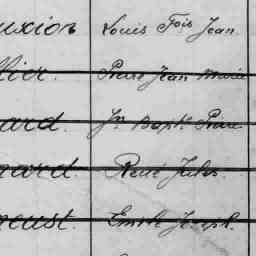 uxior Louis Fois Jean.
llier. Pierre Jean Marie
ard. Jn Bapt. Pierre
nard. René Jules.
neust. Emile Joseph.